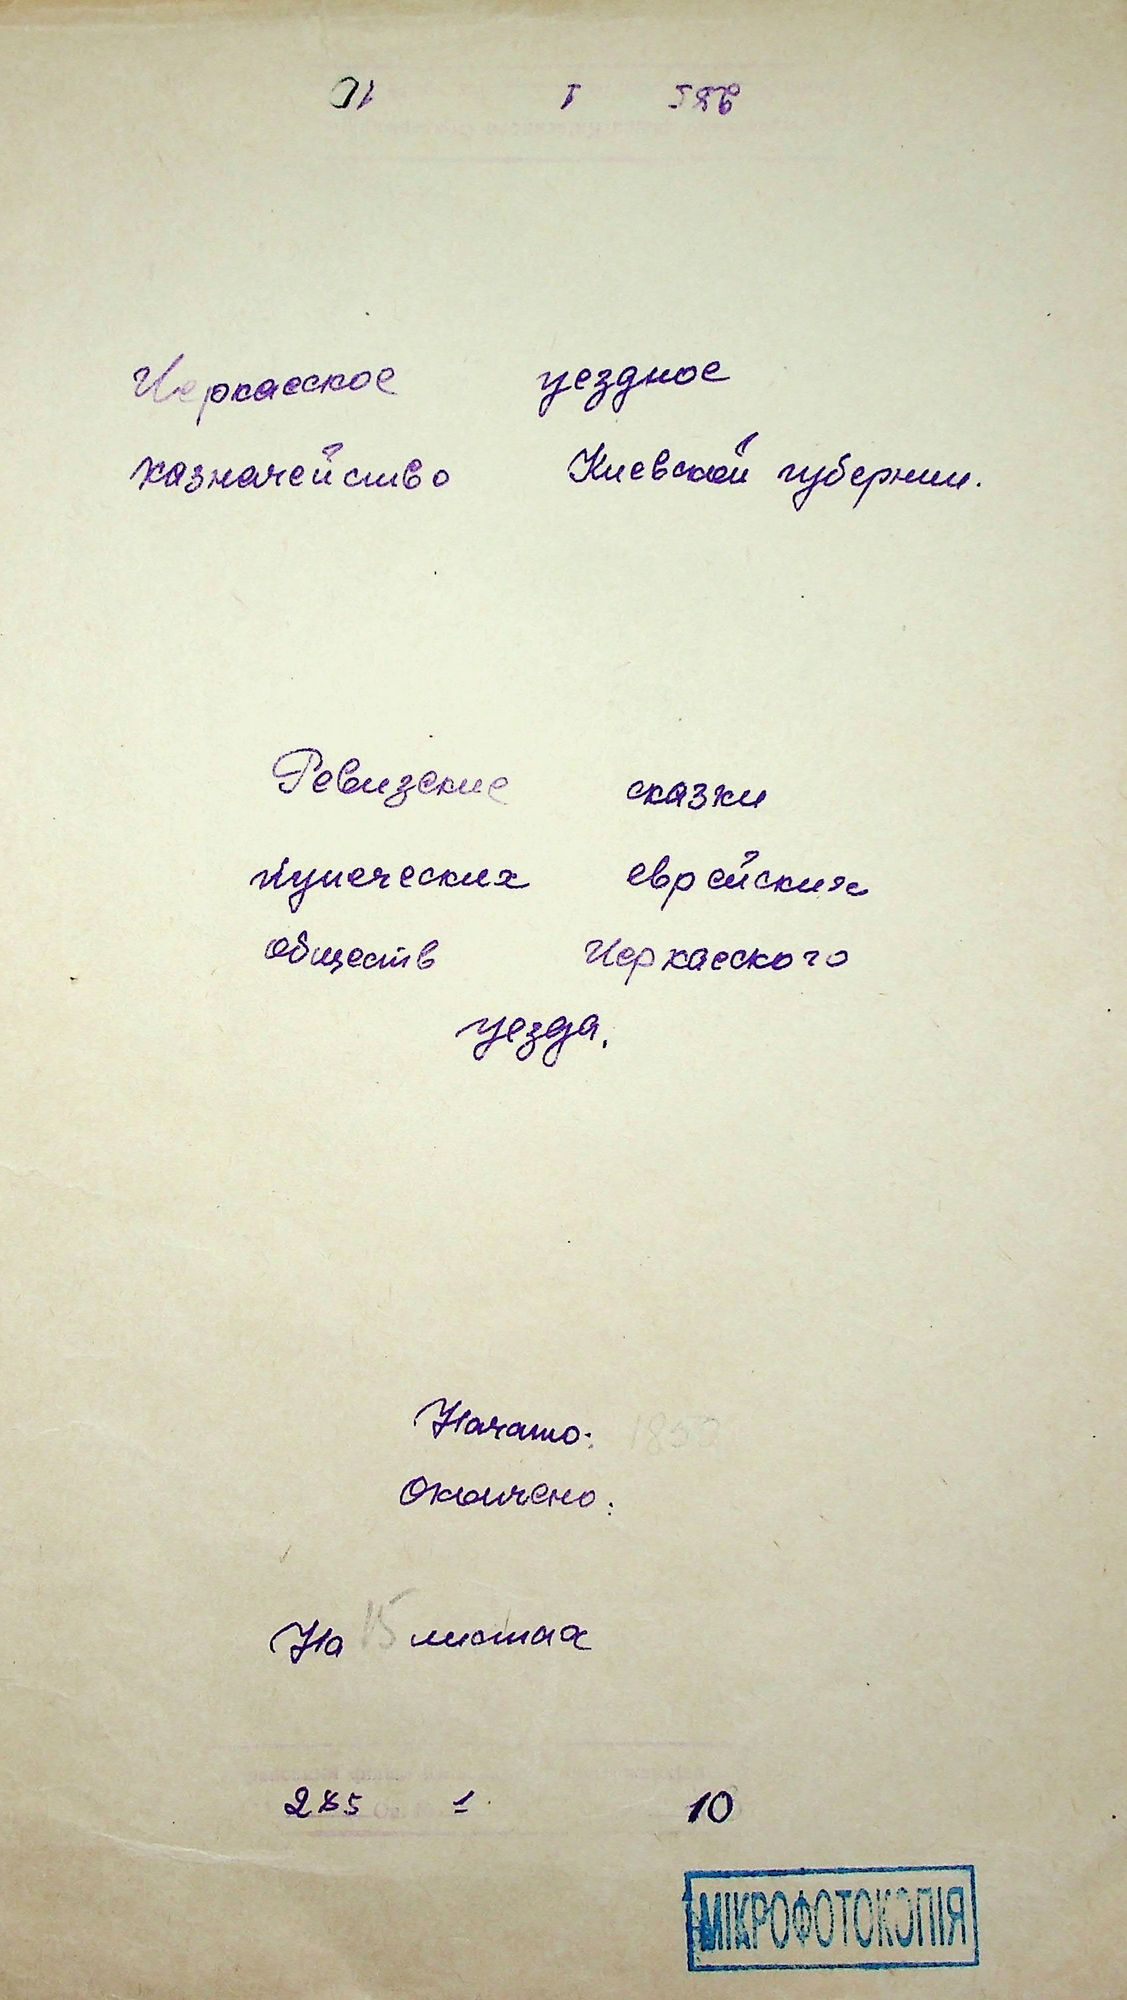 Черкасское уездное
казначейство Киевской губернии.
Ревизские сказки
купеческих еврейских
обществ Черкасского
уезда.
Начато: 1850
Окончено:
На 15 листах
1 10
МІКРОФОТОКОПІЯ